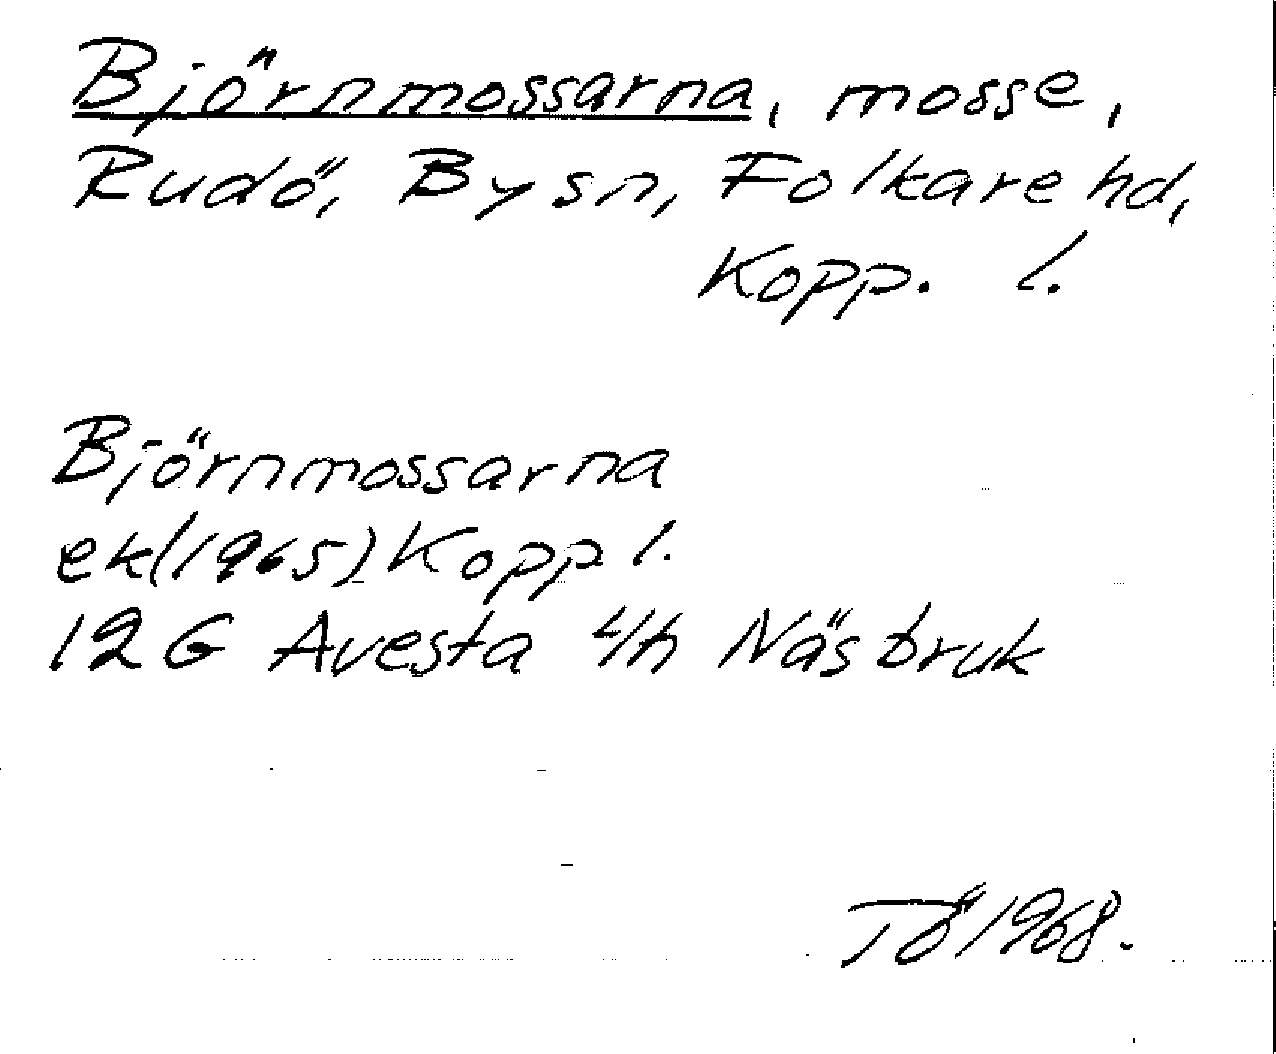 Björnmossarna, mosse,
Rudö, By sn, Folkare hd,
Kopp. l.
Björnmossarna
ek(1965) Kopp l.
12G Avesta 4h Näs bruk
TÖ 1968.